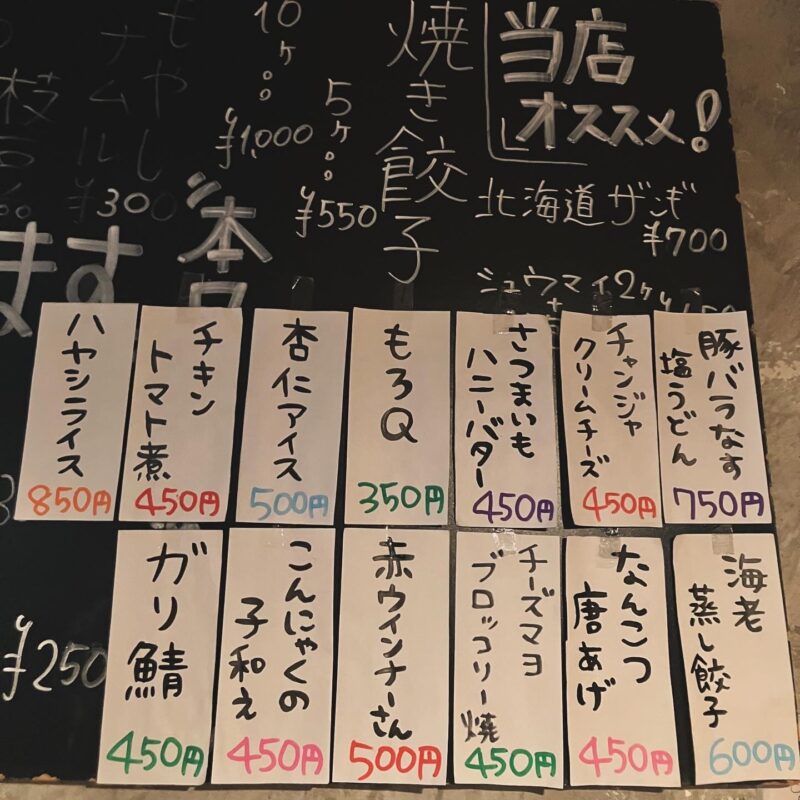 当店
オススメ!
北海道ザンギ
¥700
シュウマイ2ヶ
焼き餃子
5ヶ
¥550
10ヶ
¥1,000
もやし
ナムル
¥300
ます
豚バラなす
塩うどん
750円
チャンジャ
クリームチーズ
450円
さつまいも
ハニーバター
450円
もろQ
350円
杏仁アイス
500円
チキン
トマト煮
450円
ハヤシライス
850円
海老
蒸し餃子
600円
なんこつ
唐あげ
450円
チーズマヨ
ブロッコリー焼
450円
赤ウインナーさん
500円
こんにゃくの
子和え
450円
ガリ鯖
450円
¥250